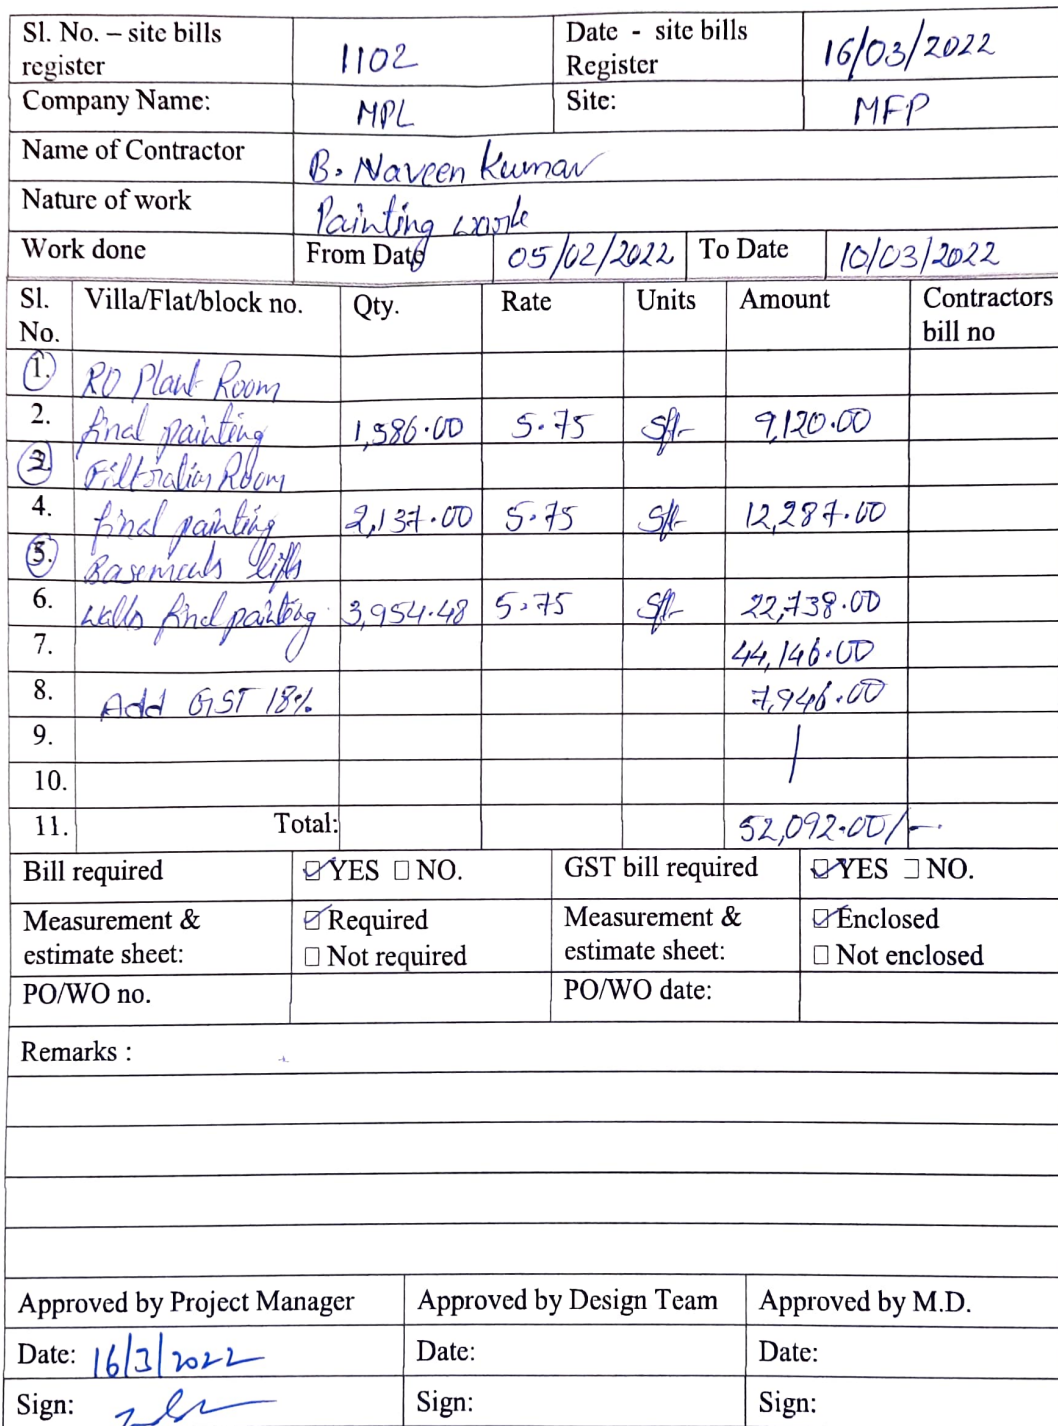 Sl. No. – site bills register 1102 Date - site bills Register 16/03/2022
Company Name: MPL Site: MFP
Name of Contractor B. Naveen Kumar
Nature of work Painting work
Work done From Date 05/02/2022 To Date 10/03/2022
Sl. No. Villa/Flat/block no. Qty. Rate Units Amount Contractors bill no
1. RO Plant Room
2. final painting 1,586.00 5.75 Sft 9,120.00
3. Filtration Room
4. final painting 2,137.00 5.75 Sft 12,287.00
5. Basements lifts
6. walls final painting 3,954.48 5.75 Sft 22,738.00
7. 44,146.00
8. Add GST 18% 7,946.00
9.
10.
11. Total: 52,092.00/-
Bill required ☑YES ☐NO. GST bill required ☑YES ☐NO.
Measurement & estimate sheet: ☑Required ☐Not required Measurement & estimate sheet: ☑Enclosed ☐Not enclosed
PO/WO no. PO/WO date:
Remarks :
Approved by Project Manager Approved by Design Team Approved by M.D.
Date: 16/3/2022 Date: Date:
Sign: Sign: Sign: